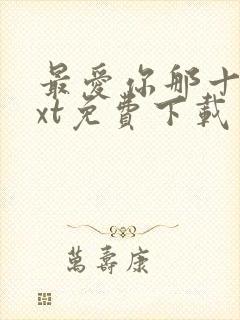 最愛你那十
xt免費下載
萬壽康